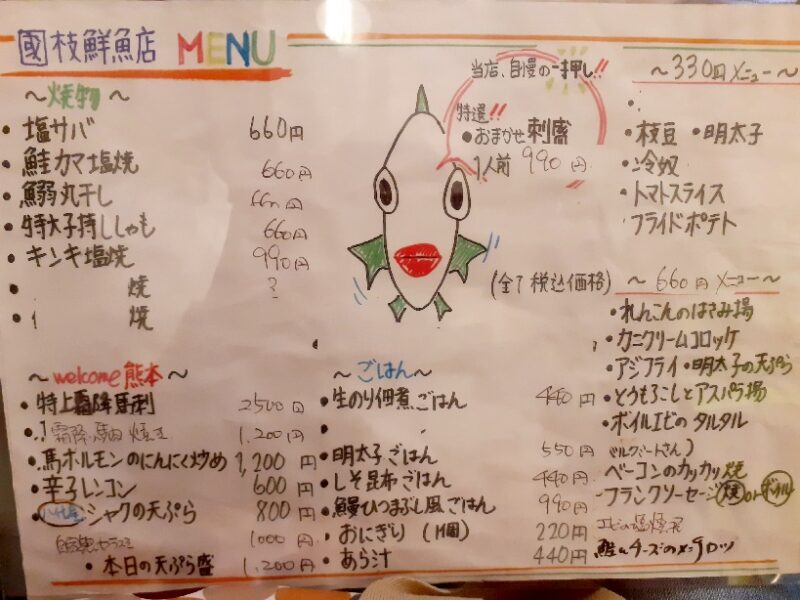 國枝鮮魚店 MENU
〜焼物〜
・塩サバ 660円
・鮭カマ塩焼 660円
・鰯丸干し 660円
・特大子持ししゃも 660円
・キンキ塩焼 990円
・ 焼 ?
・ 焼
当店、自慢の一押し!!
特選!!
・おまかせ刺盛
1人前 990円
(全て税込価格)
〜330円メニュー〜
・枝豆 ・明太子
・冷奴
・トマトスライス
・フライドポテト
〜660円メニュー〜
・れんこんのはさみ揚
・カニクリームコロッケ
・アジフライ・明太子の天ぷら
・とうもろこしとアスパラ揚
・ボイルエビのタルタル
ベーコンのカッカッ焼
フランクソーセージ 焼 or ボイル
〜welcome熊本〜
・特上霜降馬刺 2500円
霜降馬 1,200円
・馬ホルモンのにんにく炒め 1,200円
・辛子レンコン 600円
・シャクの天ぷら 800円
1000円
・本日の天ぷら盛 1,200円
〜ごはん〜
・生のり佃煮ごはん 440円
・明太子ごはん 550円
・しそ昆布ごはん 440円
・鰻ひつまぶし風ごはん 990円
・おにぎり (1個) 220円
・あら汁 440円